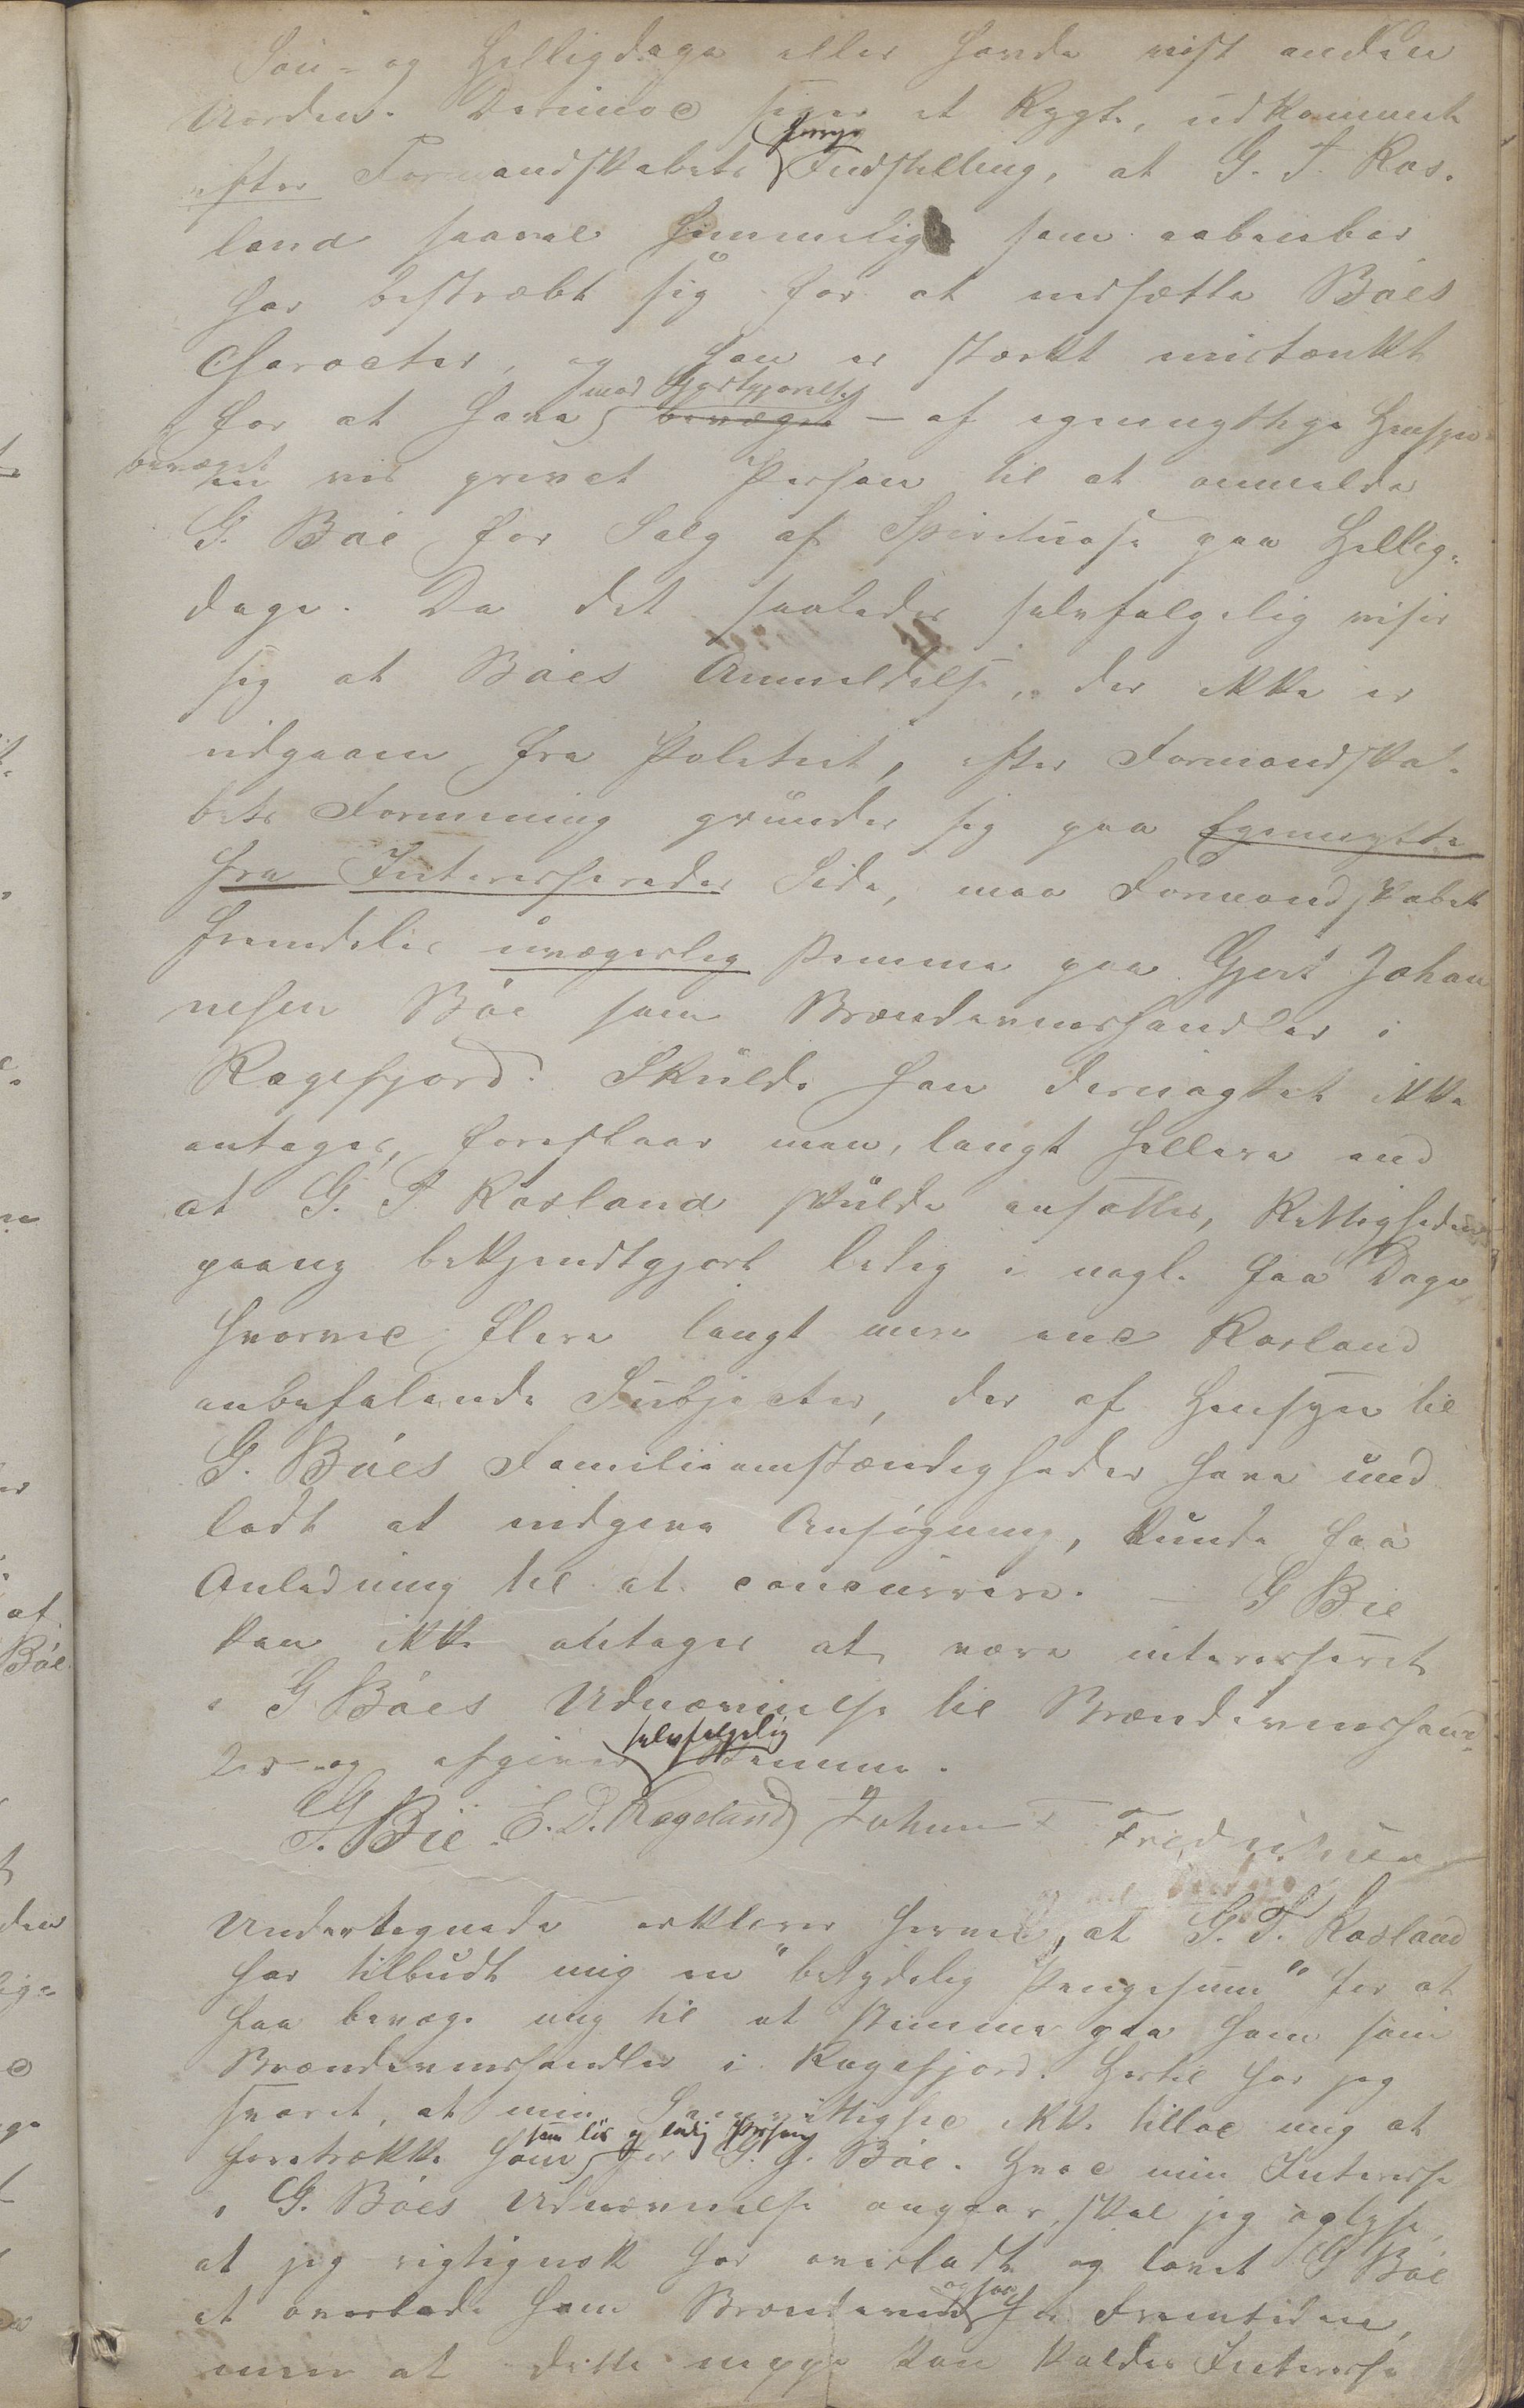 Søn- og Helligdage eller havde vist anden
Uorden. Derimod siger et Rygte, udkommet
efter Formandskabets forrige Indstilling, at G. T. Ros-
land saavel hemmelig som aabenbar
har bestræbt sig for at nedsætte Böes
Character, og han er stærkt mistænkt
for at have med Godtgjørelse bevæget – af egennyttige Hensyn
bevæget en vis privat Person til at anmelde
G. Böe for Salg af Spirituosa paa Hellig-
dage. Da det saaledes selvfølgelig viser
sig at Böes Anmeldelse, der ikke er
udgaaen fra Politiet, efter Formandska-
bets Formening grunder sig paa Egennytte
fra Interesseredes Side, maa Formandskabet
fremdeles uvægerlig stemme paa Gjert Johan
nesen Böe som Brændevinshandler i
Rægefjord. Skulde han deruagtet ikke
antages, foreslaar man, langt hellere end
at G. T. Rosland skulde ansættes, Rettigheden
paany bekjendtgjort ledig i nogle faa Dage
hvorved flere langt mere end Rosland
anbefalende Subjecter, der af Hensyn til
G. Böes Familieomstændigheder have und
ladt at indgive Ansøgning, kunde faa
Anledning til at concurrere. – G Bie
kan ikke antages at være interesseret
i G Böes Udnævnelse til Brændevinshand-
ler og afgiver selvfølgelig Stemme.
G. Bie. E. D. Rægeland Johan F Fredriksen
Undertegnede erklærer herved, at G. T. Rosland
har tilbudt mig en "betydelig Pengesum" for at
faa bevæge mig til at stemme paa ham som
Brændevinshandler i Rægefjord. Hertil har jeg
svaret, at min Samvittighed ikke tillod mig at
foretrække ham som løs og ledig Person for G. J. Böe. Hvad min Interesse
i G. Böes Udnævnelse angaar, skal jeg oplyse,
at jeg rigtignok har overladt og lovet G Böe
at overlade ham Brændeviin ogsaa for Fremtiden,
men at dette neppe kan kaldes Interesse